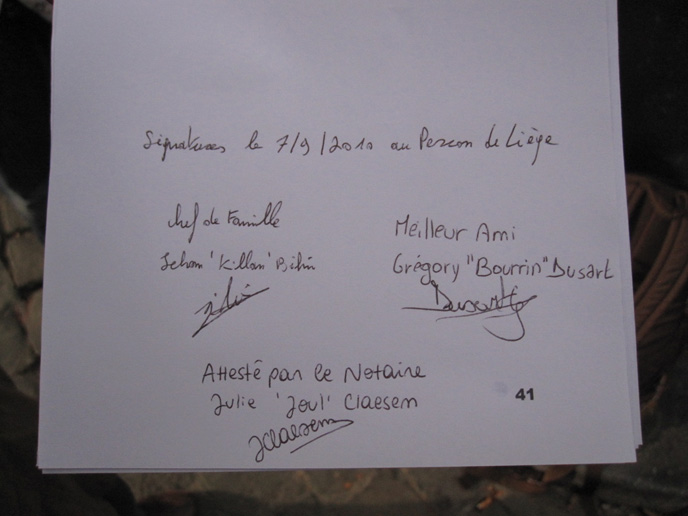 Signatures le 7/9/2010 au Perron de Liège
chef de Famille
Jehan 'Killan'
Meilleur Ami
Grégory "Bourrin" Dusart
Dusart
Attesté par le Notaire
Julie 'Joul' Claesem
JClaesem
41